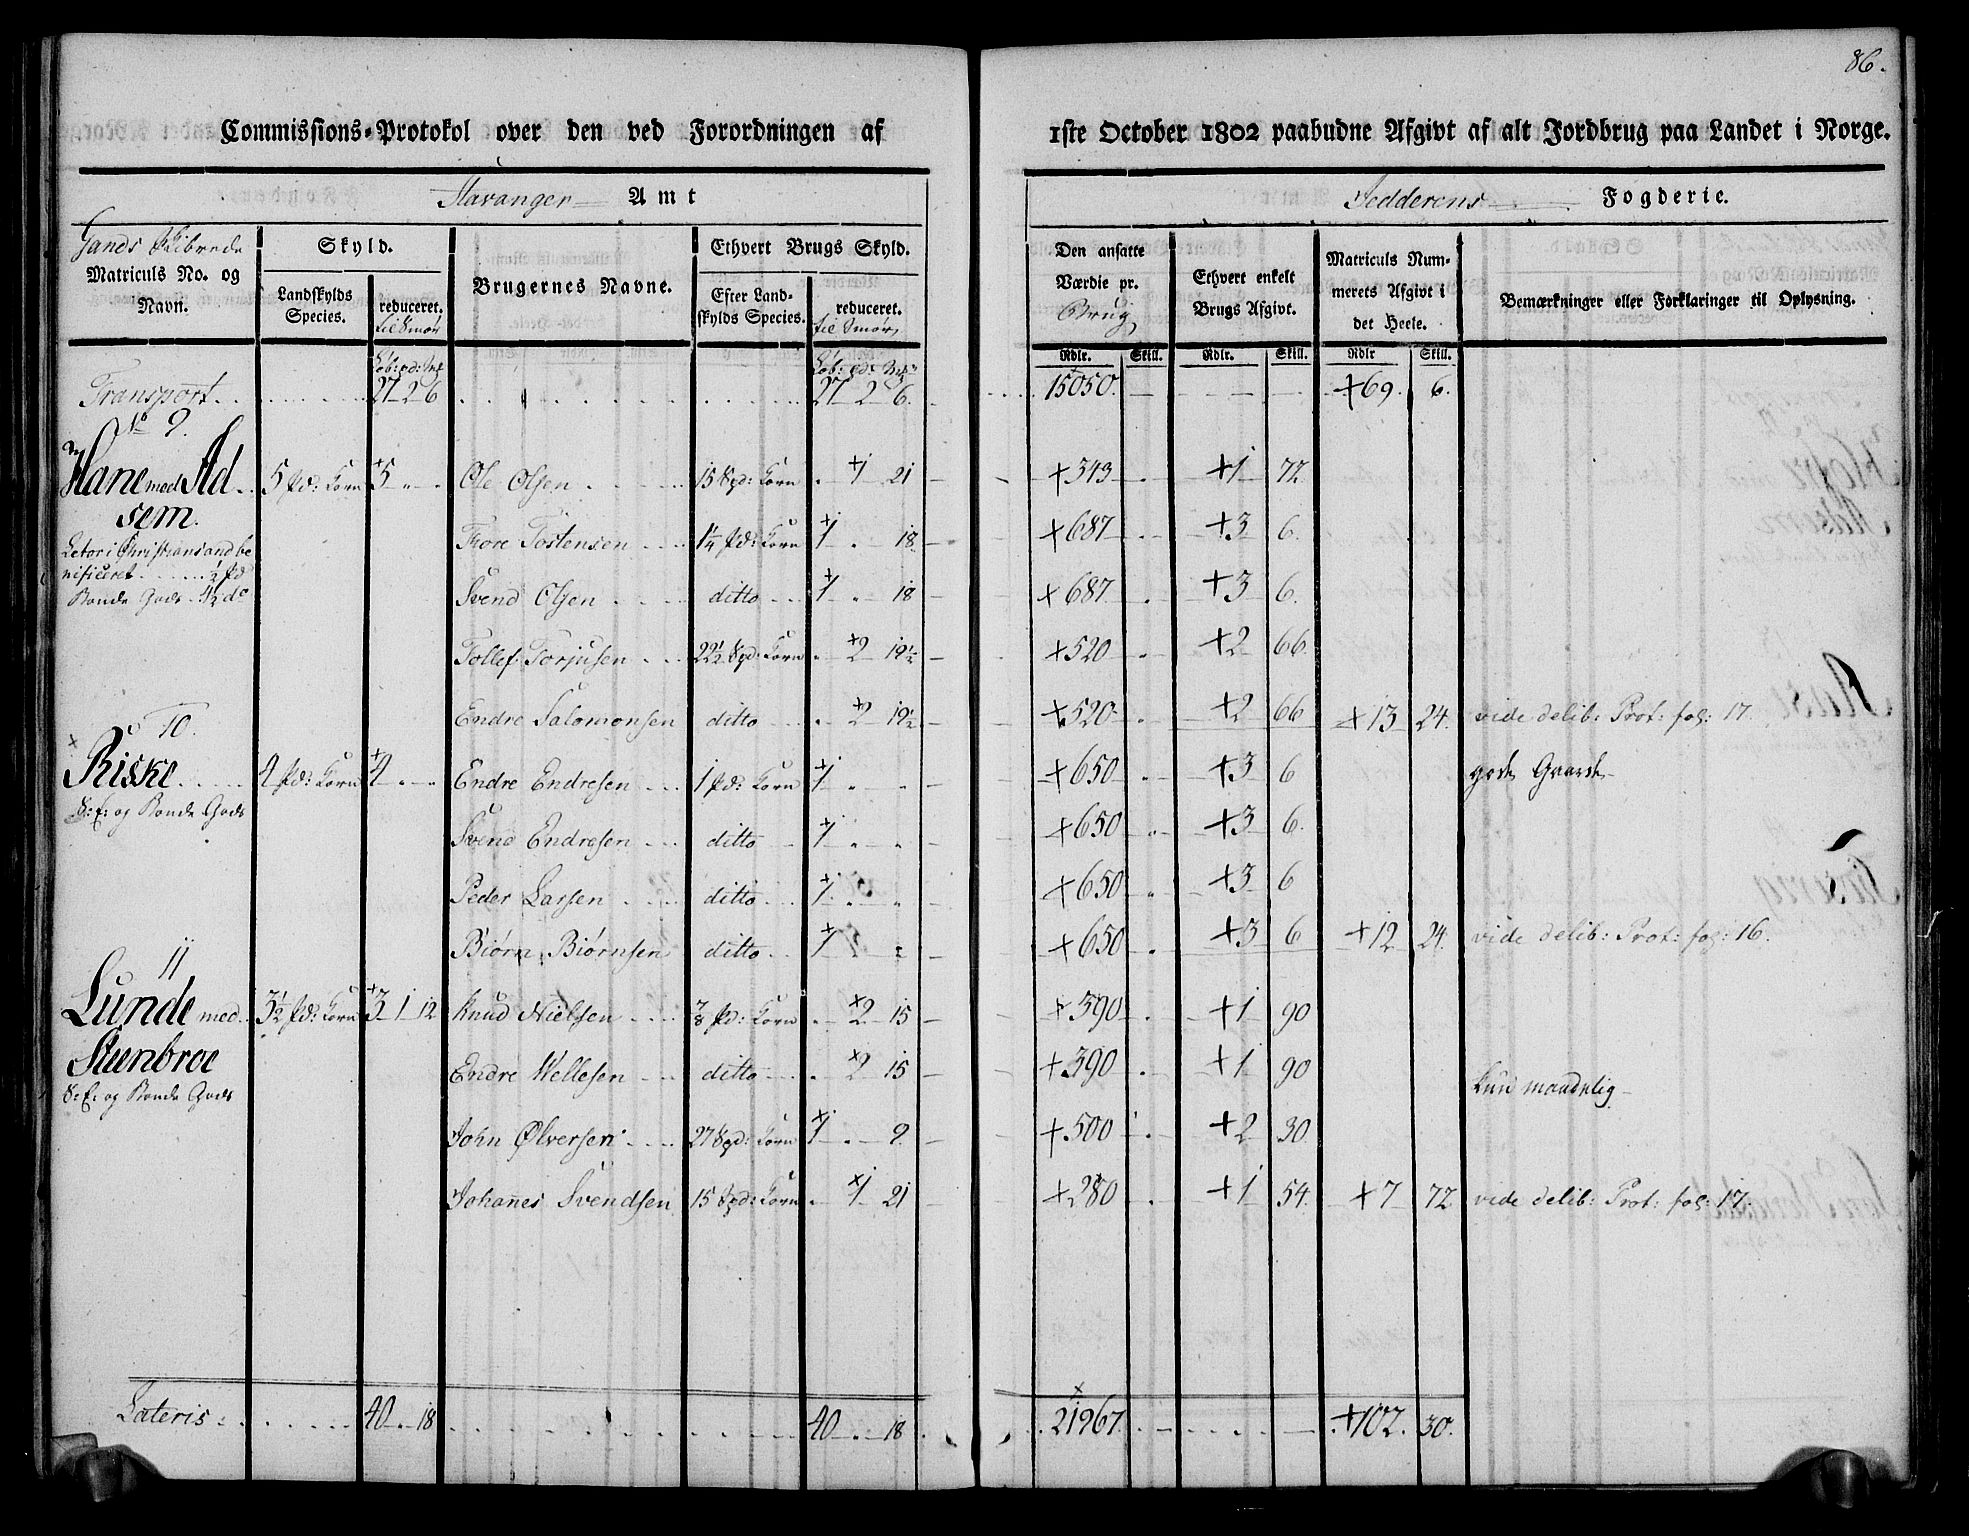 86.
Commissions-Protokol over den ved Forordningen af 1ste October 1802 paabudne Afgivt af alt Jordbrug paa Landet i Norge.
Stavanger Amt Jedderens Fogderie.
Gands Skibrede
Matriculs No. og Navn.
Skyld.
Landskylds Species.
reduceret. til Smør
Brugernes Navne.
Ethvert Brugs Skyld.
Efter Landskylds Species.
reduceret. til Smør
Den ansatte Værdie pr. Brug
Ethvert enkelt Brugs Afgivt.
Matriculs Nummerets Afgivt i det Heele.
Bemærkninger eller Forklaringer til Oplysning.
Rdlr. Skill. Rdlr. Skill. Rdlr Skill.
Transport 27 2 6 27 2 6 15050 +69 6.
No 9.
Hane med Ad 5 Pd: Korn +5 Ole Olsen 15 Spd: Korn +1 21 +343 +1 72
sem.
Thore Tostensen 1¼ Pd: Korn +1 18 +687 +3 6.
Lector i Christiansand be
nificeret ½ Pd
Bonde Gods 4½ do Svend Olsen ditto +1 18 +687 +3 6.
Tollef Torjusen 22½ Spd: Korn +2 19½ +520 +2 66
Endre Salomonsen ditto +2 19½ +520 +2 66 +13 24. vide delib: Prot: fol: 17
10.
Riske 4 Pd: Korn +4 Endre Endresen 1 Pd: Korn +1 +650 +3 6 gode Gaarde
S: E: og Bonde Gods
Svend Endresen ditto +1 +650 +3 6.
Peder Larsen ditto +1 +650 +3 6
Biørn Biørnsen ditto +1 +650 +3 6 +12 24. vide delib: Prot: fol: 16.
11
Lunde med 3½ Pd: Korn +3 1 12 Knud Nielsen ⅞ Pd: Korn +2 15 +390 +1 90
Steenbroe Endre Wellesen ditto +2 15 +390 +1 90
S: E: og Bonde Gods
kun maadelig
John Ølversen 27 Spd: Korn +1 9 +500 +2 30
Johannes Svendsen 15 Spd: Korn +1 21 +280 +1 54. +7 72 vide delib: Prot: fol: 17.
Lateris 40 18 40 18 21967 +102. 30.